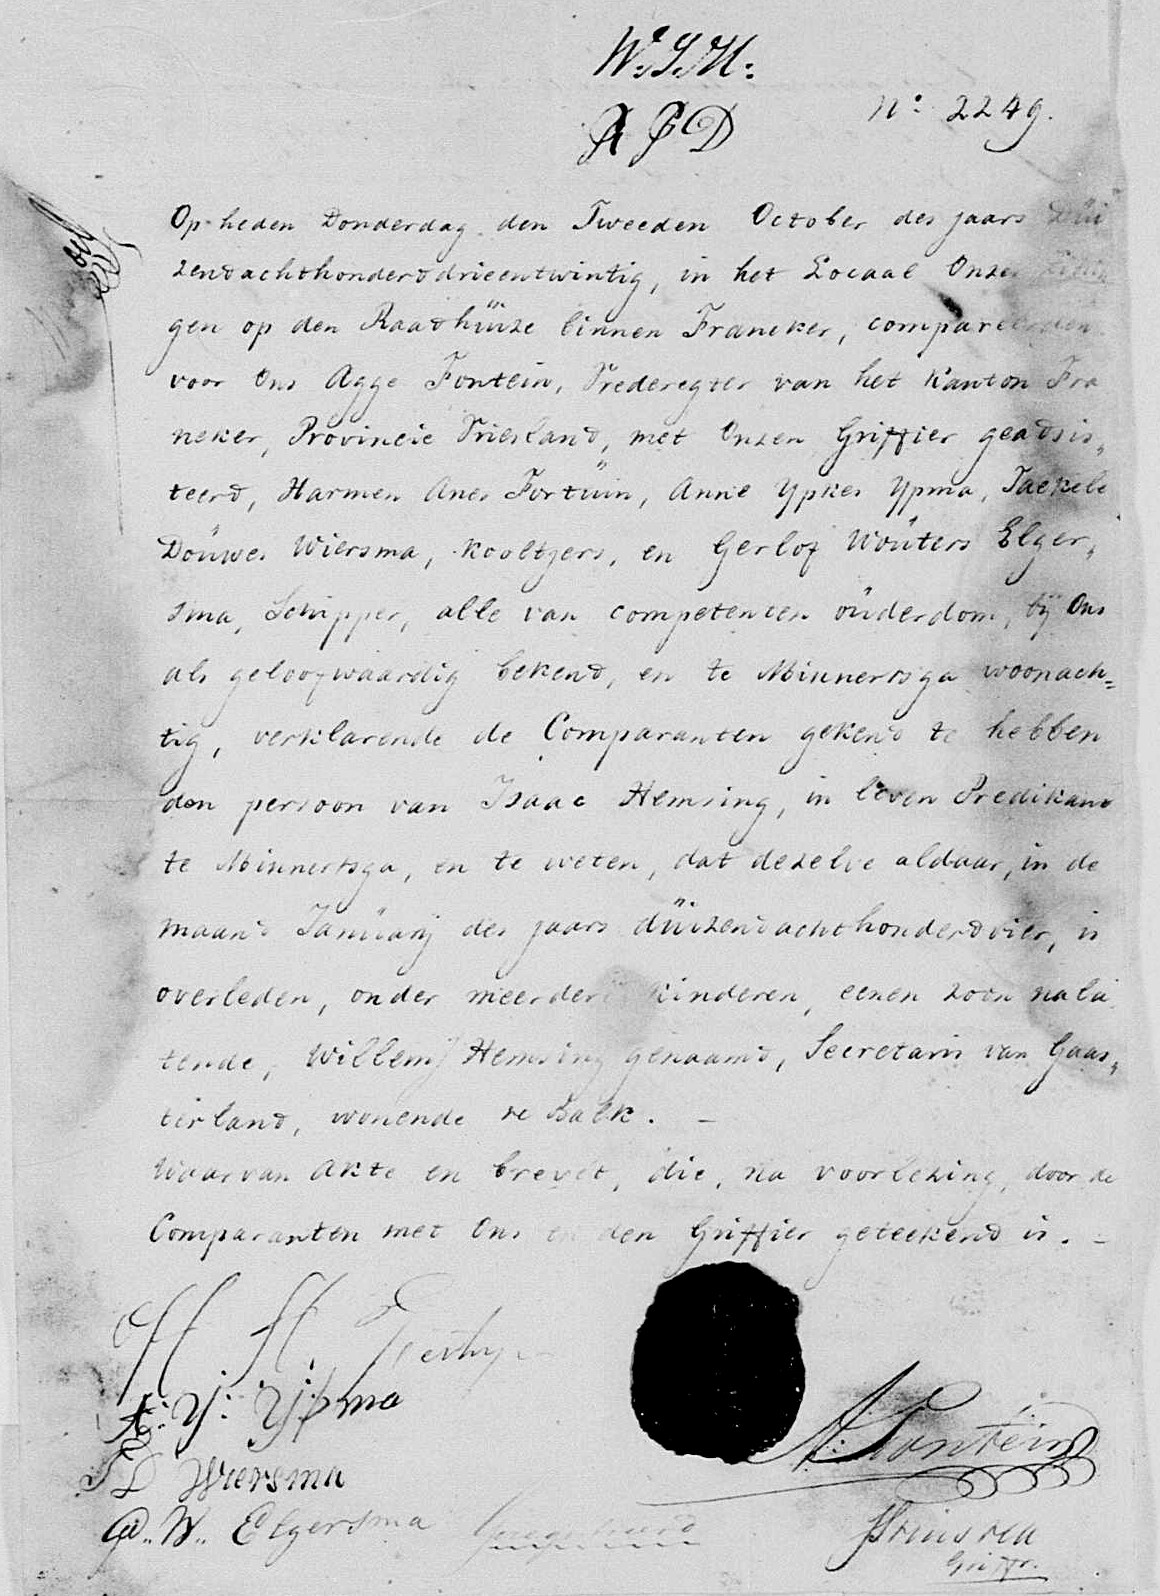 W. S. H:
A F D
No: 2249.
Op heden Donderdag den Tweeden October des jaars düi
zendachthonderddrieentwintig, in het Locaal Onzer Zittin
gen op den Raadhüize binnen Franeker, compareerden
voor Ons Agge Fontein, Vrederegter van het Kanton Fra
neker, Provincie Vriesland, met Onzen Griffier geadsis„
teerd, Harmen Anes Fortüin, Anne Ypkes Ypma, Jaekele
Doüwes Wiersma, Kooltjers, en Gerlof Woüters Elger„
sma, Schipper, alle van competenten oüderdom, bÿ Ons
als geloofwaardig bekend, en te Minnertsga woonach=
tig, verklarende de Comparanten gekend te hebben
den persoon van Isaac Hemsing, in leven Predikand
te Minnertsga, en te weten, dat dezelve aldaar, in de
maand Janüarÿ des jaars düizendachthonderdvier, is
overleden, onder meerdere kinderen, eenen zoon nala
tende, Willem Hemsing genaamd, Secretaris van Gaas„
terland, wonende te Balk. –
Waarvan Akte en brevet, die, na voorlezing, door de
Comparanten met Ons en den Griffier geteekend is. –
H. A.
A: Y: Ypma
J D Wiersma
G.. W.. Elgersma
A: Fontein
Griffr.